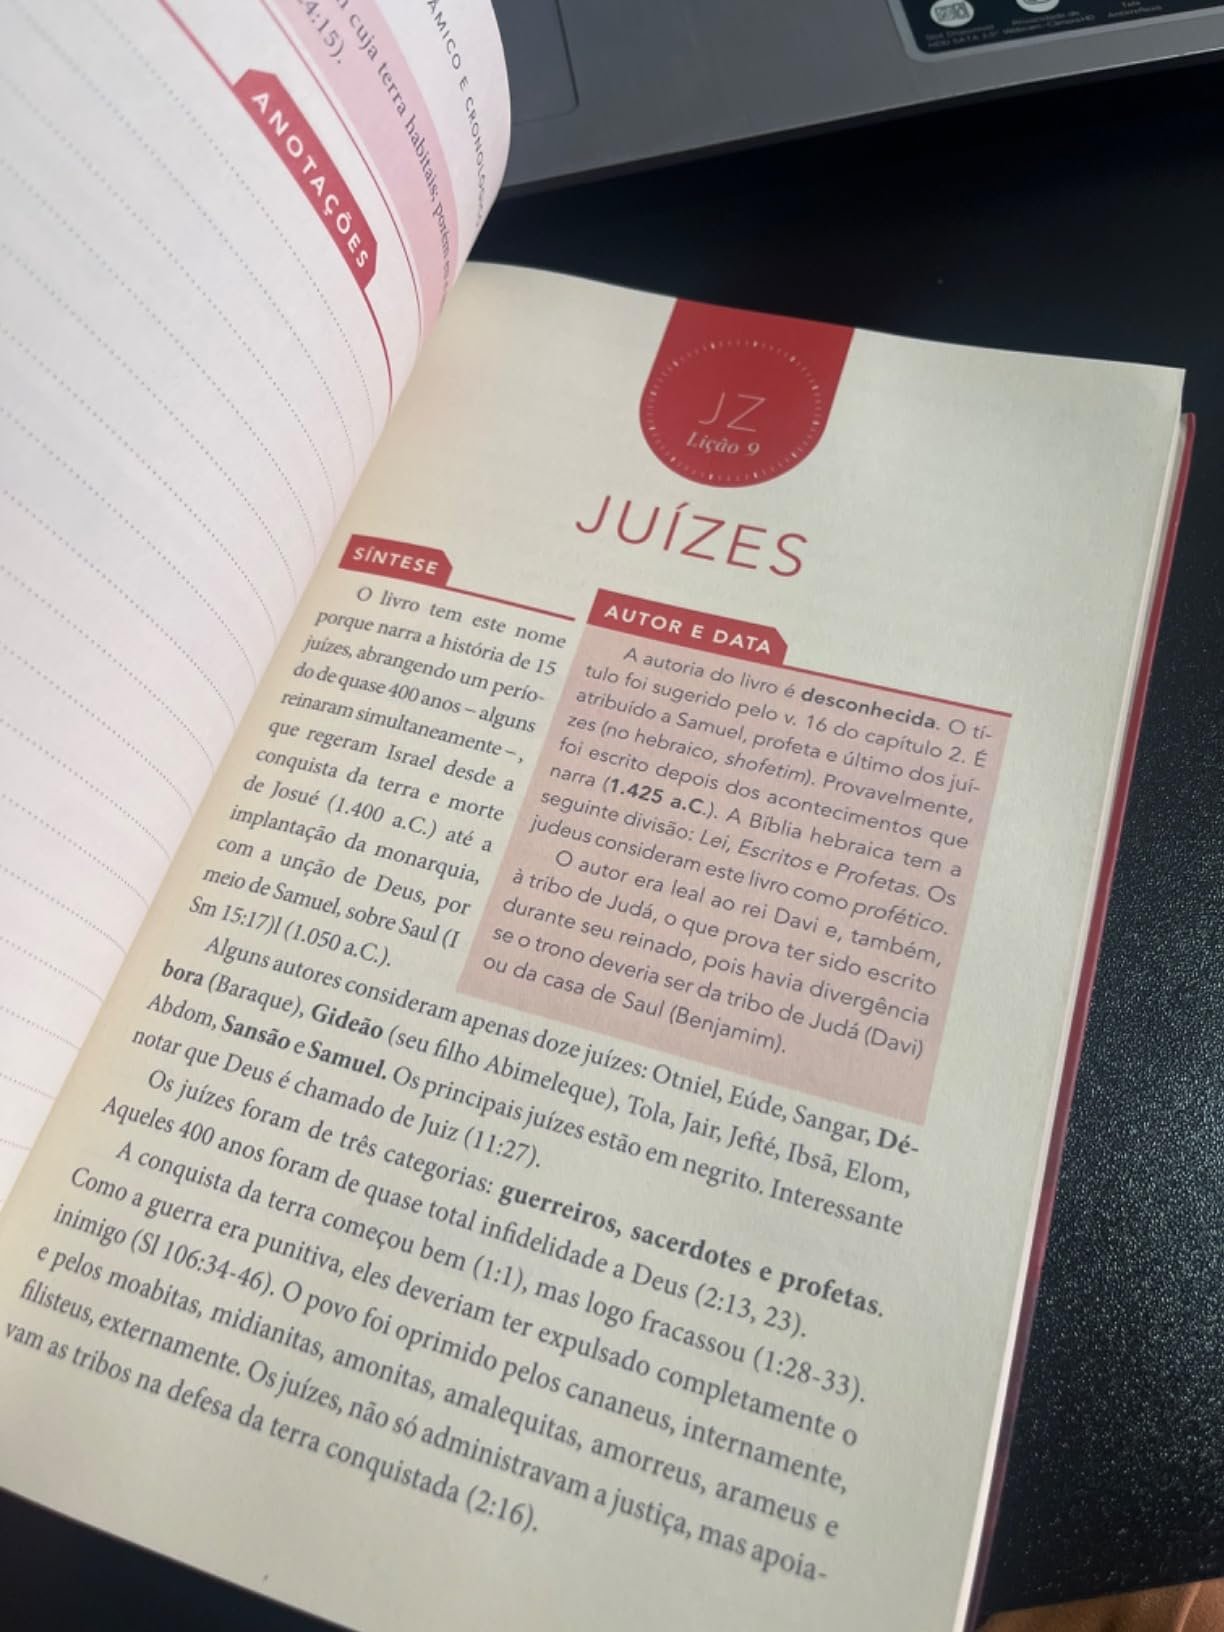 ÂMICO E CRONOLÓGICO
cuja terra habitais; porém eu
4:15).
ANOTAÇÕES
JZ
Lição 9
JUÍZES
SÍNTESE
O livro tem este nome
porque narra a história de 15
juízes, abrangendo um perío-
do de quase 400 anos – alguns
reinaram simultaneamente –,
que regeram Israel desde a
conquista da terra e morte
de Josué (1.400 a.C.) até a
implantação da monarquia,
com a unção de Deus, por
meio de Samuel, sobre Saul (I
Sm 15:17)l (1.050 a.C.).
AUTOR E DATA
A autoria do livro é desconhecida. O tí-
tulo foi sugerido pelo v. 16 do capítulo 2. É
atribuído a Samuel, profeta e último dos juí-
zes (no hebraico, shofetim). Provavelmente,
foi escrito depois dos acontecimentos que
narra (1.425 a.C.). A Bíblia hebraica tem a
seguinte divisão: Lei, Escritos e Profetas. Os
judeus consideram este livro como profético.
O autor era leal ao rei Davi e, também,
à tribo de Judá, o que prova ter sido escrito
durante seu reinado, pois havia divergência
se o trono deveria ser da tribo de Judá (Davi)
ou da casa de Saul (Benjamim).
Alguns autores consideram apenas doze juízes: Otniel, Eúde, Sangar, Dé-
bora (Baraque), Gideão (seu filho Abimeleque), Tola, Jair, Jefté, Ibsã, Elom,
Abdom, Sansão e Samuel. Os principais juízes estão em negrito. Interessante
notar que Deus é chamado de Juiz (11:27).
Os juízes foram de três categorias: guerreiros, sacerdotes e profetas.
Aqueles 400 anos foram de quase total infidelidade a Deus (2:13, 23).
A conquista da terra começou bem (1:1), mas logo fracassou (1:28-33).
Como a guerra era punitiva, eles deveriam ter expulsado completamente o
inimigo (Sl 106:34-46). O povo foi oprimido pelos cananeus, internamente,
e pelos moabitas, midianitas, amonitas, amalequitas, amorreus, arameus e
filisteus, externamente. Os juízes, não só administravam a justiça, mas apoia-
vam as tribos na defesa da terra conquistada (2:16).